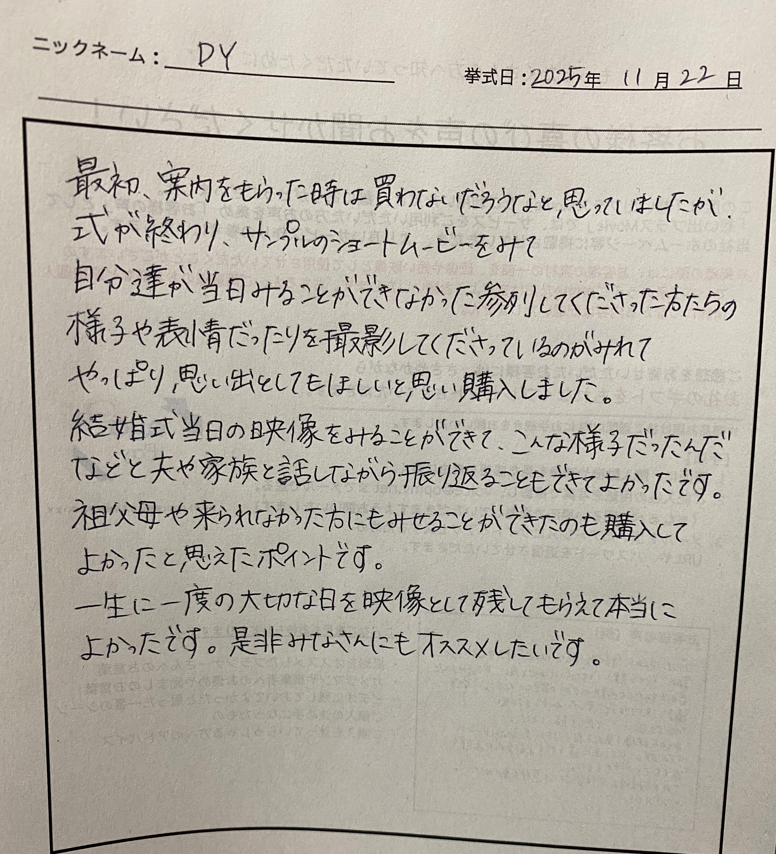 ニックネーム: DY
挙式日:2025年 11月 22日
最初、案内をもらった時は買わないだろうなと思っていましたが、
式が終わり、サンプルのショートムービーをみて
自分達が当日みることができなかった参列してくださった方たちの
様子や表情だったりを撮影してくださっているのがみれて
やっぱり、思い出としてもほしいと思い購入しました。
結婚式当日の映像をみることができて、こんな様子だったんだ
などと夫や家族と話しながら振り返ることもできてよかったです。
祖父母や来られなかった方にもみせることができたのも購入して
よかったと思えたポイントです。
一生に一度の大切な日を映像として残してもらえて本当に
よかったです。是非みなさんにもオススメしたいです。